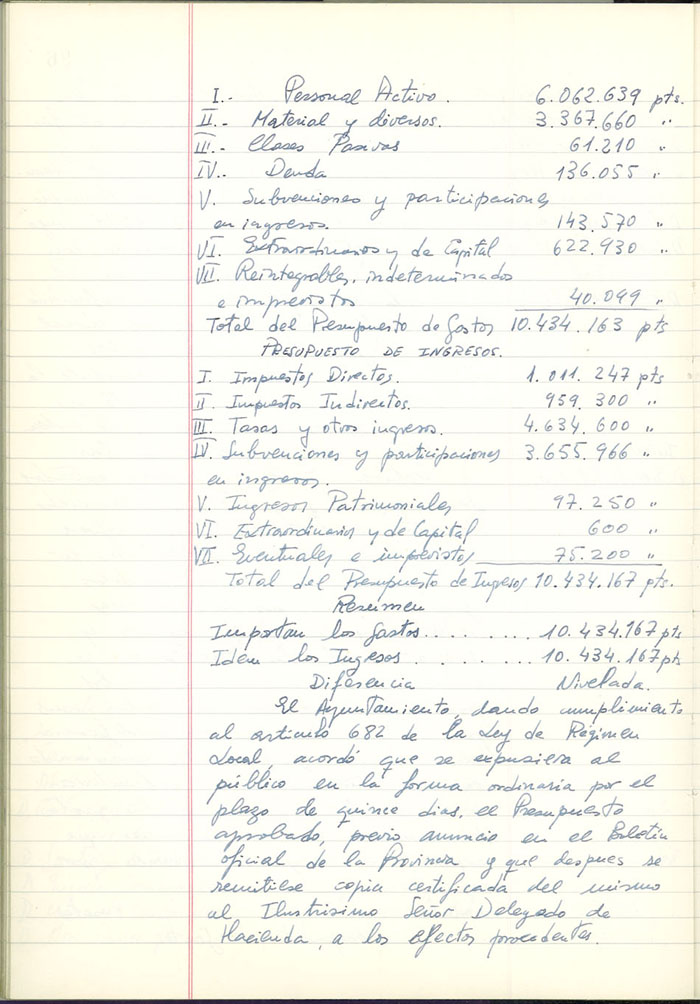 I.- Personal Activo. 6.062.639 pts.
II.- Material y diversos. 3.367.660 "
III.- Clases Pasivas 61.210 "
IV.- Deuda 136.055 "
V. Subvenciones y participaciones
en ingresos. 143.570 "
VI. Extraordinarios y de Capital 622.930 "
VII. Reintegrables, indeterminados
e imprevistos 40.099 "
Total del Presupuesto de Gastos 10.434.163 pts
PRESUPUESTO DE INGRESOS.
I. Impuestos Directos. 1.011.247 pts
II. Impuestos Indirectos. 959.300 "
III. Tasas y otros ingresos. 4.634.600 "
IV. Subvenciones y participaciones 3.655.966 "
en ingresos.
V. Ingresos Patrimoniales 97.250 "
VI. Extraordinarios y de Capital 600 "
VII. Eventuales e imprevistos 75.200 "
Total del Presupuesto de Ingesos 10.434.167 pts.
Resumen
Importan los Gastos......... 10.434.167 pts
Idem los Ingesos ......... 10.434.167 pts
Diferencia Nivelada.
El Ayuntamiento, dando cumplimiento
al articulo 682 de la Ley de Régimen
Local, acordó que se expusiera al
público en la forma ordinaria por el
plazo de quince dias, el Presupuesto
aprobado, previo anuncio en el Boletín
oficial de la Provincia y que despues se
remitiese copia certificada del mismo
al Ilustrisimo Señor Delegado de
Hacienda, a los efectos procedentes.